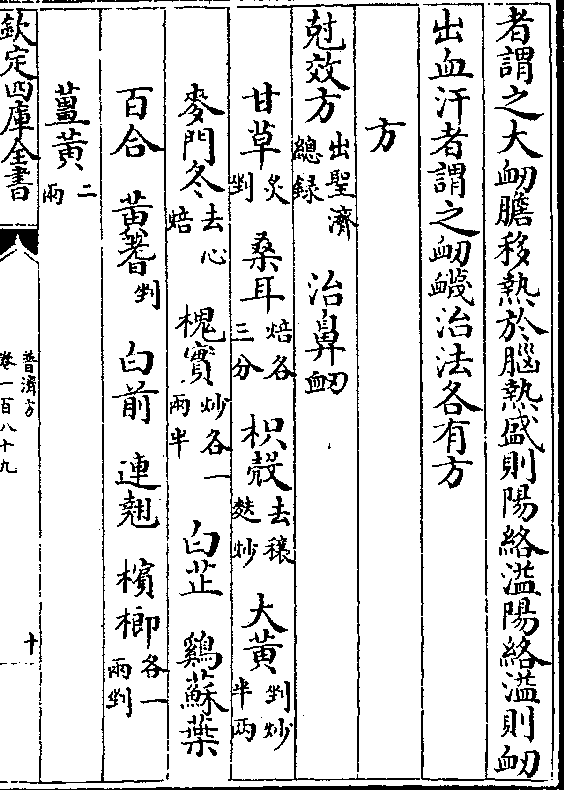 者謂之大衂膽移熱於腦熱盛則陽絡溢陽絡溢則衂
出血汗者謂之衂衊治法各有方
方
尅效方出聖濟總録 治鼻衂
甘草炙剉 桑耳焙各三分 枳殻去穰麩炒 大黄剉炒半兩
麥門冬去心焙 槐實炒各一兩半 白芷 鷄蘇葉
百合 黄蓍剉 白前 連翹 檳榔各一兩剉
薑黄二兩
欽定四庫全書
普濟方
卷一百八十九
十